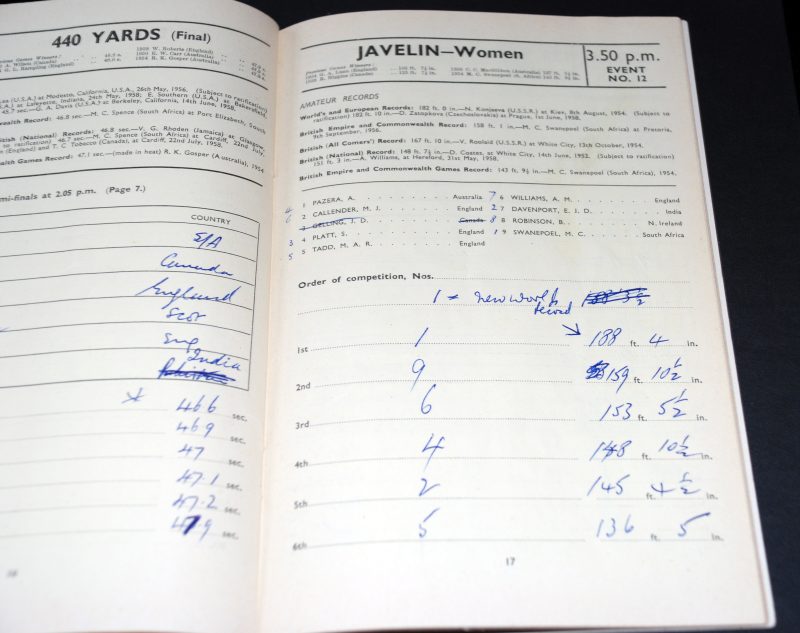 440 YARDS (Final)
1950 E. W. Carr (Australia)
1954 R. K. Gosper (Australia)
at Modesto, California, 26th May, 1956. (Subject to ratification)
at Lafayette, Indiana, 24th May, 1958; E. Southern (U.S.A.) at Bakersfield,
45.7 sec.—G. A. Davis (U.S.A.) at Berkeley, California, 14th June, 1958.
Record: 46.8 sec.—M. C. Spence (South Africa) at Port Elizabeth, South
(National) Records: 46.8 sec.—V. G. Rhoden (Jamaica) at Glasgow,
46.7 sec.—M. C. Spence (South Africa) at Cardiff, 22nd July,
(England) and T. C. Tobacco (Canada), at Cardiff, 22nd July, 1958.
Games Record: 47.1 sec.—(made in heat) R. K. Gosper (Australia), 1954
at 2.05 p.m. (Page 7.)
COUNTRY
S/A
Canada
England
Scot
Eng
India
46.6 sec.
46.9 sec.
47 sec.
47.1 sec.
47.2 sec.
47.9 sec.
JAVELIN—Women
3.50 p.m.
EVENT
NO. 12
AMATEUR RECORDS
World's and European Records: 182 ft. 0 in.—N. Konjaeva (U.S.S.R.) at Kiev, 8th August, 1954. (Subject to
ratification) 182 ft. 10 in.—D. Zatopkova (Czechoslovakia) at Prague, 1st June, 1958.
British Empire and Commonwealth Record: 158 ft. 1 in.—M. C. Swanepoel (South Africa) at Pretoria,
9th September, 1956.
British (All Comers') Record: 167 ft. 10 in.—V. Roolaid (U.S.S.R.) at White City, 13th October, 1954.
British (National) Record: 148 ft. 7½ in.—D. Coates, at White City, 14th June, 1952. (Subject to ratification)
151 ft. 3 in.—A. Williams, at Hereford, 31st May, 1958.
British Empire and Commonwealth Games Record: 143 ft. 9½ in.—M. C. Swanepoel (South Africa), 1954.
4 1 PAZERA, A. Australia 7 6 WILLIAMS, A. M. England
6 2 CALLENDER, M. J. England 2 7 DAVENPORT, E. J. D. India
3 GELLING, J. D. Canada 8 8 ROBINSON, B. N. Ireland
3 4 PLATT, S. England 1 9 SWANEPOEL, M. C. South Africa
5 5 TADD, M. A. R. England
Order of competition, Nos.
1 = new world record
1st 1 188 ft. 4 in.
2nd 9 159 ft. 10½ in.
3rd 6 153 ft. 5½ in.
4th 4 148 ft. 10½ in.
5th 2 145 ft. 4½ in.
6th 5 136 ft. 5 in.
17